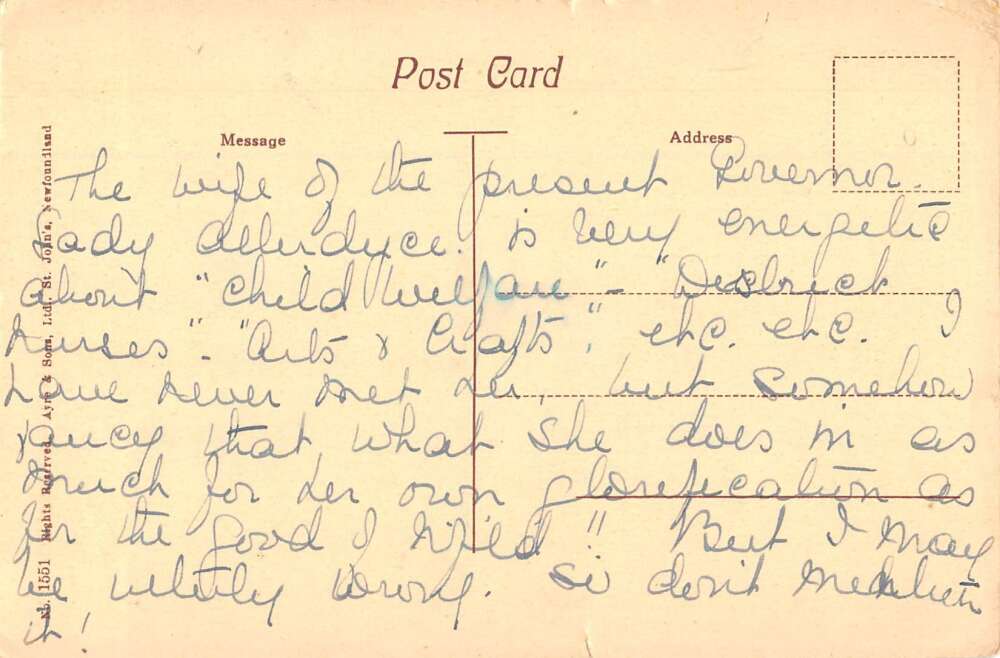 Post Card
Message
Address
No. 1551 Rights Reserved, Ayre & Sons, Ltd., St. John's, Newfoundland
The wife of the present Governor.
Lady Allerdyce. is very energetic
about "Child Welfare" - "District
Nurses" - "Arts & Crafts", etc. etc. I
have never met her, but somehow
fancy that what she does is as
much for her own glorification as
for the good of N'f'l'd!! But I may
be utterly wrong. So don't mention
it!